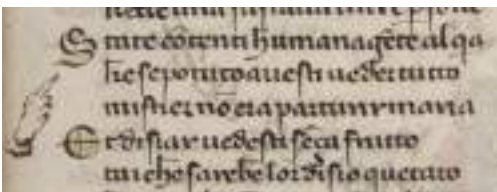 State cōtenti humana gēte al qa
he se potuto auesti ueder tutto
mistier nō era parturir maria
Et disiar uedesti sēça frutto
tai che sarebe lor disio quetato